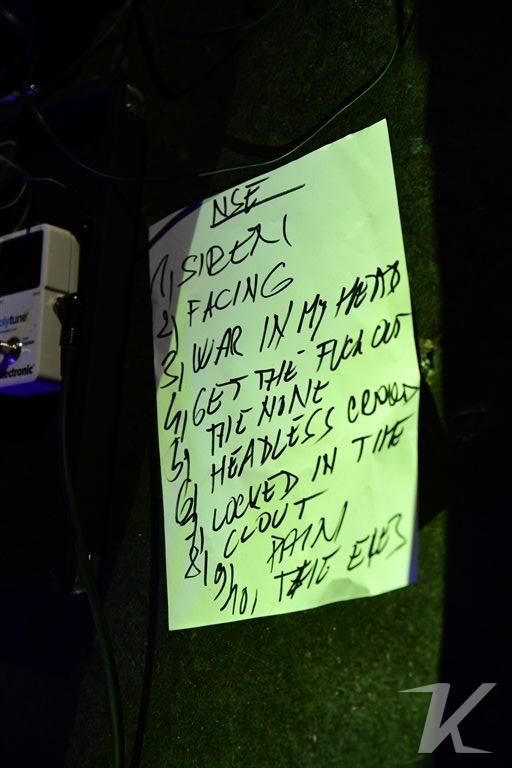 NSE
1, SIDERI
2, FACING
3, WAR IN MY HEAD
4, GET THE FUCK OUT
5, THE NONE
6, HEADLESS CROWD
7, LOCKED IN TIME
8, CLOUT
9, PAIN
10, THE EYES
polytune
electronic
K